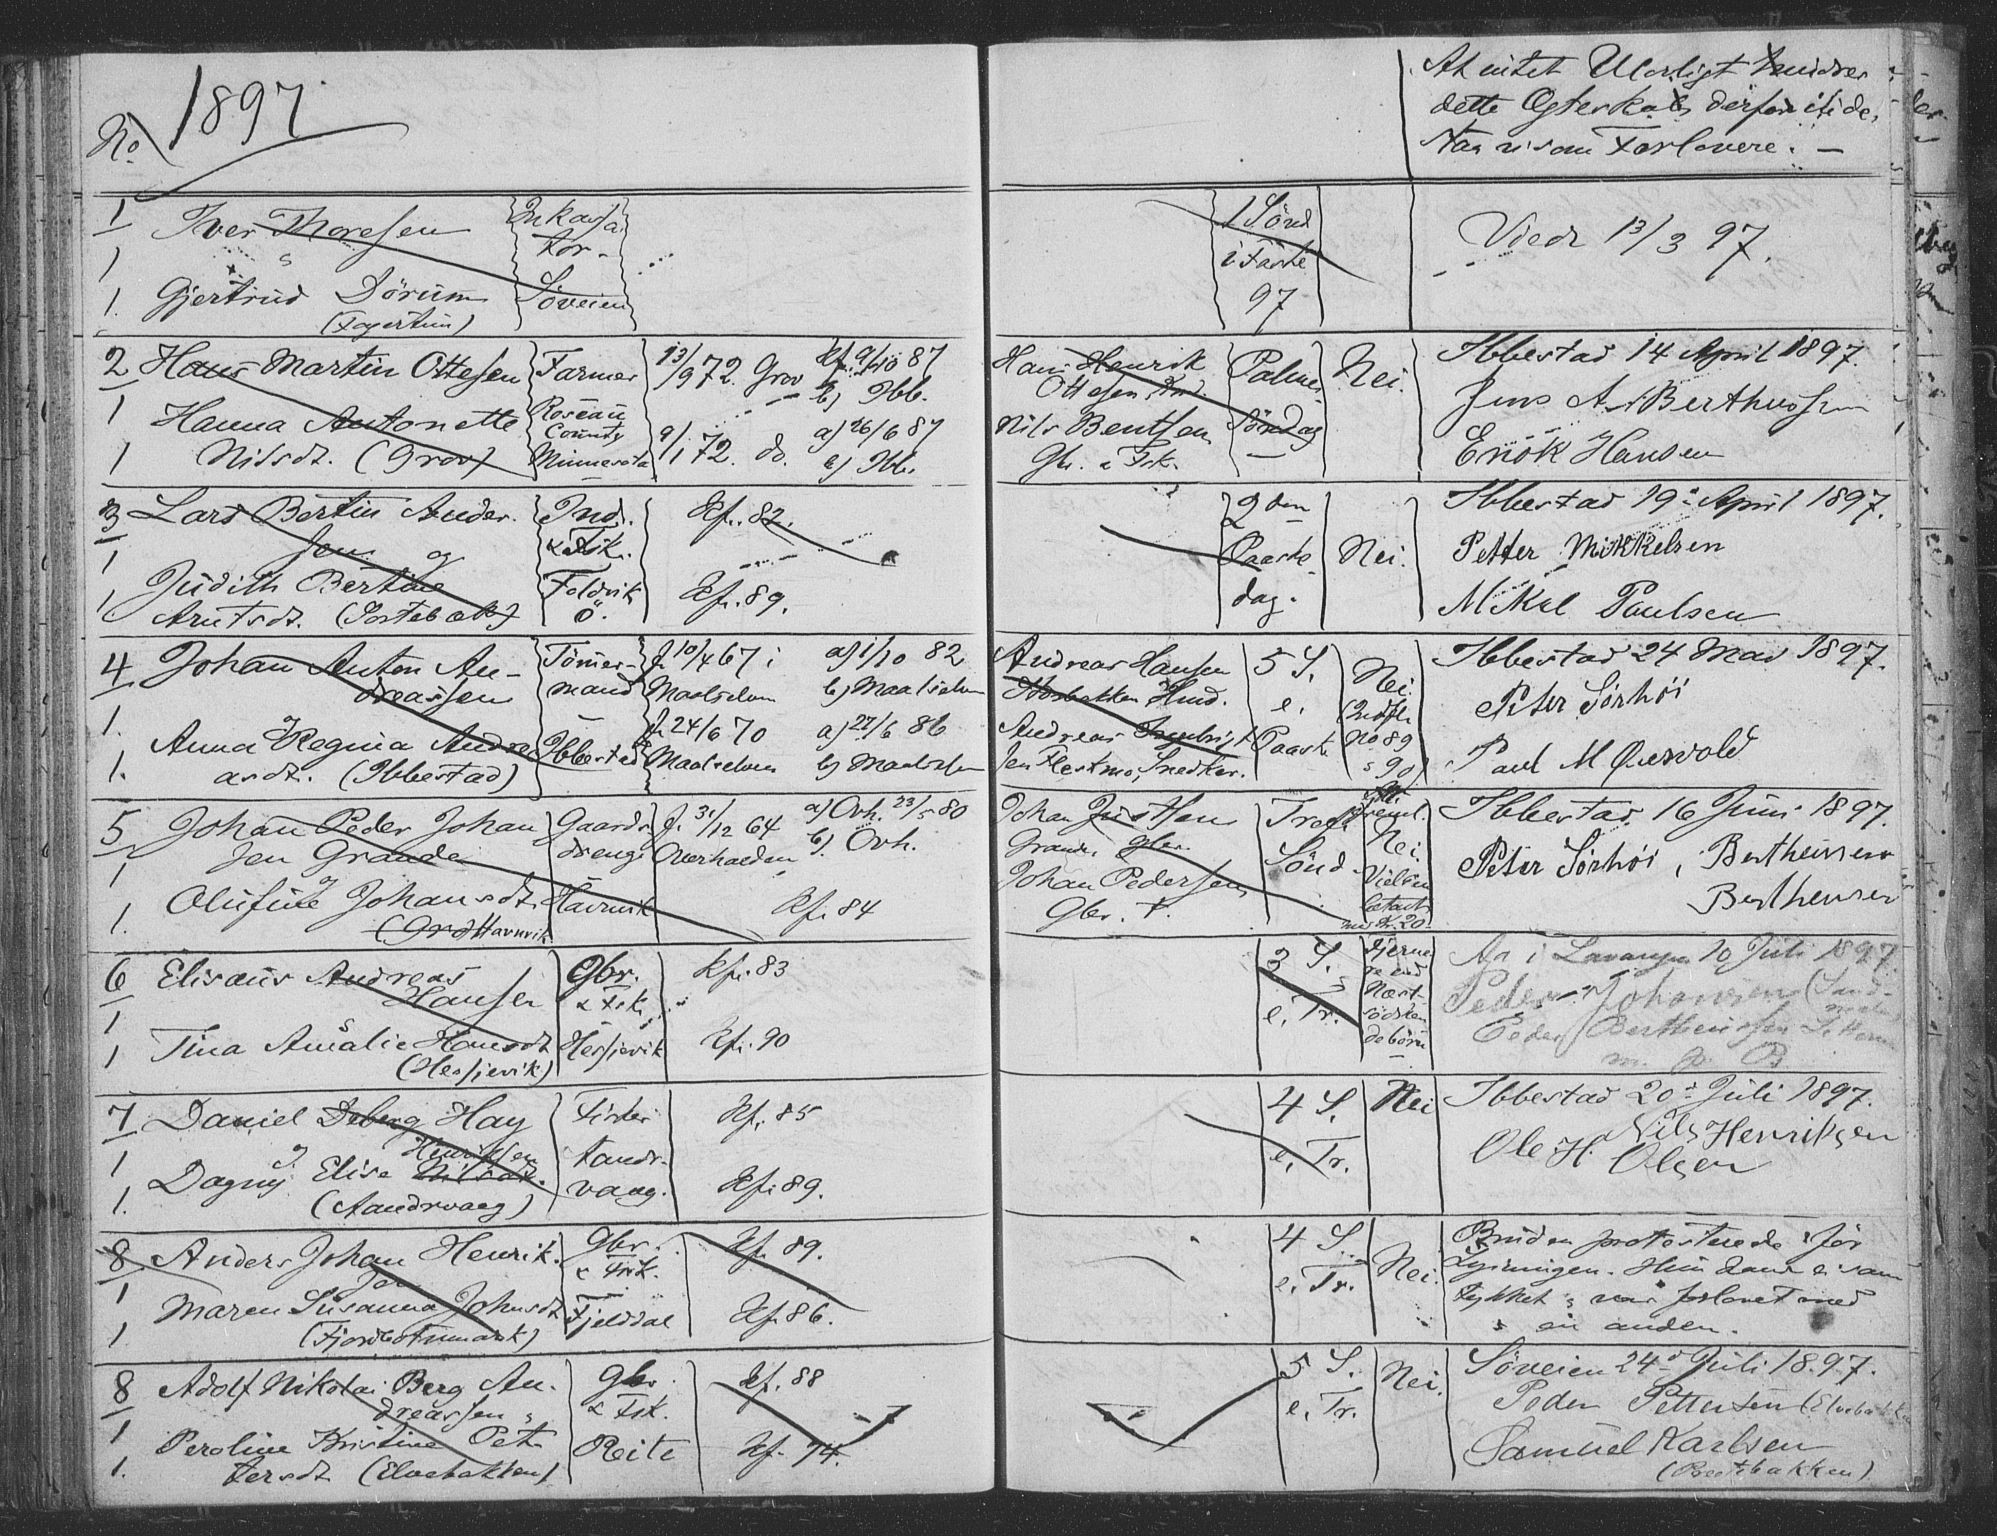 No. 1897.
At intet Ulovligt hindrer
dette Ægteskab, derfor
som Forlovere. —
1 Iver Thoresen
Inkassa
tor.
1
1. Gjertrud Dörum
(Fagertun)
Söveien
1 Sönd
i Faste
97
Viede 13/3 97.
2 Hans Martin Ottesen
Farmer
13/9 72. Grov
Kf. 9/10 87
b) Ibb.
1 Hanna Antonette
1 Nilsdt. (Grov)
Roseau
County
Minnesota
9/1 72. do.
a) 26/6 87
b) Ibb.
Hans Henrik
Ottesen
Nils Bentsen
Gbr. & Fsk.
Palme
Söndag
Nei.
Ibbestad 14 April 1897.
Jens A. Berthussen
Enok Hansen
3 Lars Bertin Ander.
sen og
1
1 Judith Bertine
Arntsdt. (Sostebak)
Ind.
& Fsk.
Foldvik
ö.
Kf. 82.
Kf. 89.
2den
Paaske
dag.
Nei.
Ibbestad 19. April 1897.
Petter Mikkelsen
Mikal Paulsen
4 Johan Anton An-
dreassen
1. og
Anna Regina Andre
1. asdt. (Ibbestad)
Tömer-
mand
Ibbestad
f. 10/4 67 i
Maalselven
f. 24/6 70
Maalselven
a) 1/10 82
b) Maalselven
a) 27/6 86
b) Maalselven
Andreas Hansen
Ind.
Andreas
sen Flestmo, Snedker.
5 S.
e.
Paaske
Nei.
No 89
s 90)
Ibbestad 24 Mai 1897.
Peter Sörhöi
Paul M Quevold
5 Johan Peder Johan
sen Grande
1 og
Olufine Johansdt.
1. (Havnvik
Gaards
dreng
Havnvik
f. 31/12 64
Overhalden
a) Ovh. 23/5 80
b) Ovh.
Kf. 84
Johan Justsen
Grande Gbr.
Johan Pedersen
Gbr. †.
Tref.
Sönd
Nei.
Vielsen
betalt
med Kr. 20.
Ibbestad 16 Juni 1897.
Peter Sörhöi, Bertheussen
Bertheusen
6 Elisæus Andreas
Hansen
1
1 Tina Amalie Hansdt
(Hesjevik)
Gbr.
& Fsk.
Hesjevik
Kf. 83
Kf. 90
3 S.
e. Tr.
Fjerne
re end
Næst-
södsken
debörn
Aa i Lavangen 10 Juli 1897.
Peder Johansen
Peder Bertheussen
m. p. P.
7 Daniel Deberg Hay
Henriksen
1 og
Dagny Elise Nilsdt.
1. (Aandrvaag)
Fisker
Aandr-
vaag.
Kf. 85
Kf. 89.
4 S.
e. Tr.
Nei
Ibbestad 20. Juli 1897.
Nils Henriksen
Ole H. Olsen
8 Anders Johan Henrik.
sen
1
Maren Susanna Johnsdt
1. (Fjordbotnmark)
Gbr.
& Fsk.
Fjelddal
Kf. 89.
Kf. 86.
4 S.
e. Tr.
Nei.
Bruden protesterede för
Lysningen. Hun havde ei sam
tykket & var forlovet med
en anden.
8 Adolf Nikolai Berg An.
dreassen
1
Peroline Kristine Pet
1. tersdt (Elvebakken)
Gbr.
& Fsk.
Reite
Kf. 88
Kf. 94.
5 S.
e. Tr.
Nei.
Söveien 24. Juli 1897.
Peder Pettersen (Elvebakken
Samuel Karlsen